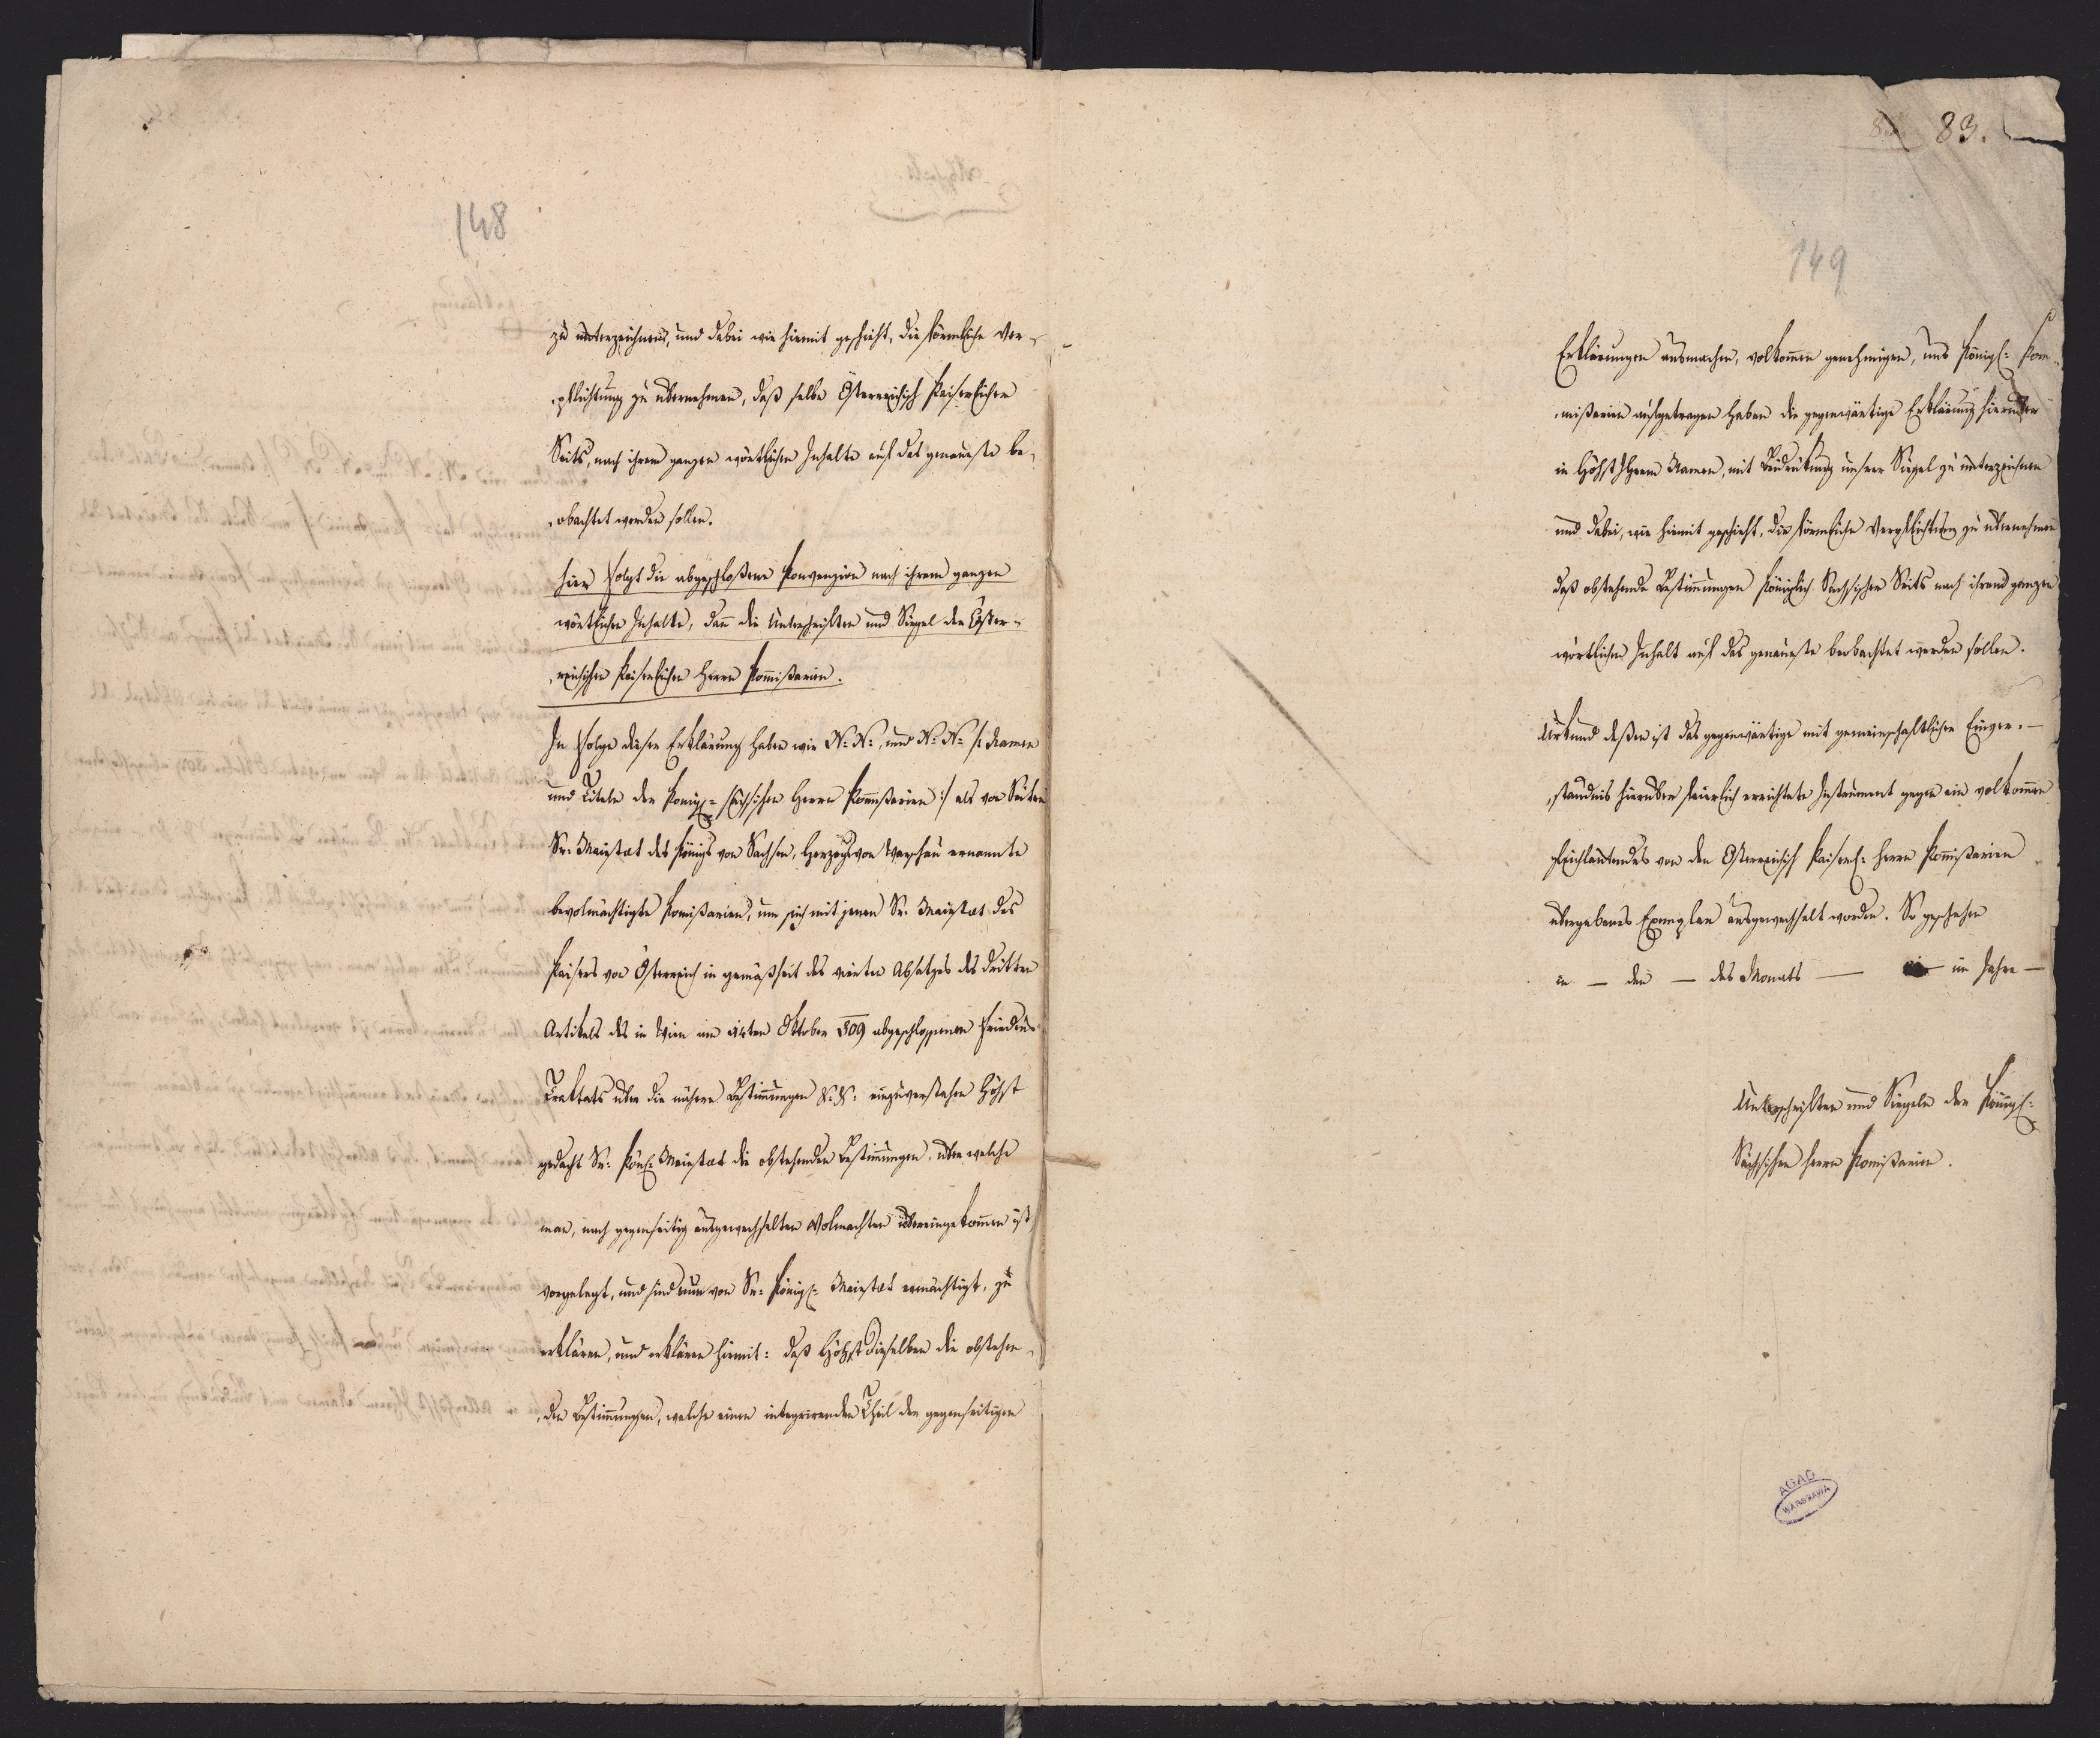 148
zu unterzeichnen, und dabei wie hiemit geschieht, die förmliche Ver-
-pflichtung zu übernehmen, daß selbe Österreichisch Kaiserlicher
Seits, nach ihrem ganzen wörtlichen Inhalte auf das genaueste be-
-obachtet werden sollen.
hier folgt die abgeschloßene Konvenzion nach ihrem ganzen
wörtlichen Inhalte, dann die Unterschriften und Siegel der Öster-
-reichischen Kaiserlichen Herrn Kommißarien.
In Folge dieser Erklärung haben wir N: N:, und N: N: /: Namen
und Titeln der Königl: sächsischen Herrn Kommißarien :/ als von Seiten
Sr. Majestät des Königs von Sachsen, Herzogs von Warschau ernannte
bevolmächtigte Komißarien, um sich mit jenen Sr. Majestät des
Kaisers von Österreich in gemäßheit des vierten Absatzes des dritten
Artikels des in Wien am 14ten Oktober 809 abgeschlossenen Friedens
Traktats über die nähern Bestimmungen &. &. einzuverstehen Höchst
gedacht Sr: Könl: Majestät die obstehenden Bestimmungen, über welche
man, nach gegenseitig ausgewechselten Volmachten übereingekommen ist,
vorgelegt, und sind nun von Sr: Königl: Majestät ermächtigt, zu
erklären, und erklären hiemit: daß Höchst dieselben die obstehen-
-den Bestimmungen, welche einen integrirenden Theil der gegenseitigen
83.
149
Erklärungen ausmachen, volkommen genehmigen, uns Königl: Kom-
-mißarien aufgetragen haben die gegenwärtige Erklärung hierüber
in Höchst Ihrem Namen, mit Beidrückung unserer Siegel zu unterzeichnen
und dabei, wie hiemit geschieht, die förmliche Verpflichtung zu übernehmen
daß obstehende Bestimmungen Königlich Sächsischer Seits nach ihrem ganzen
wörtlichen Inhalt auf das genaueste beobachtet werden sollen.
Urkund deßen ist das gegenwärtige mit gemeinschaftlichem Einver-
-ständnis hierüber feierlich errichtete Instrument gegen ein volkommen
gleichlautendes von den Österreichisch Kaiserl: Herrn Kommißarien
übergebenes Exemplar ausgewechselt worden. So geschehen
in — den — des Monats — im Jahre —
Unterschriften und Siegeln der Königl:
Sächsischen Herrn Komißarien.
AGAD
WARSZAWA